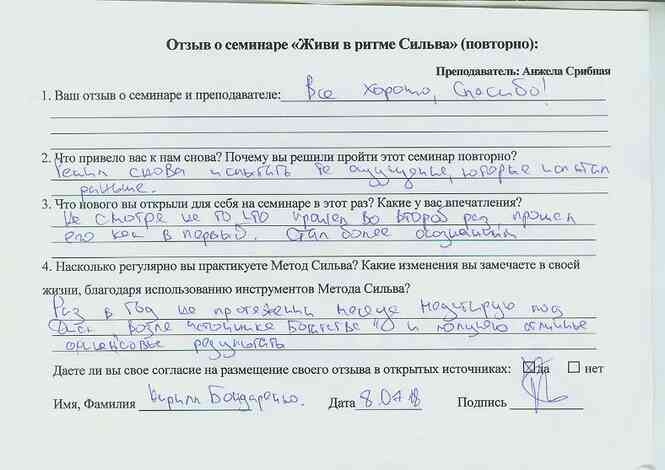 Отзыв о семинаре «Живи в ритме Сильва» (повторно):
Преподаватель: Анжела Срибная
1. Ваш отзыв о семинаре и преподавателе: Все хорошо, Спасибо!
2. Что привело вас к нам снова? Почему вы решили пройти этот семинар повторно?
Решил снова испытать те ощущение, которые испытал
раньше.
3. Что нового вы открыли для себя на семинаре в этот раз? Какие у вас впечатления?
Не смотре не то что прошел во второй раз, прошел
его как в первый. Стал более осознанным
4. Насколько регулярно вы практикуете Метод Сильва? Какие изменения вы замечаете в своей
жизни, благодаря использованию инструментов Метода Сильва?
Раз в год на протяжении месяца медитирую под
возле источника Богатства и получаю отличные
финансовые результаты
Даете ли вы свое согласие на размещение своего отзыва в открытых источниках: да нет
Имя, Фамилия Кирилл Бондаренко. Дата 8.04 18 Подпись